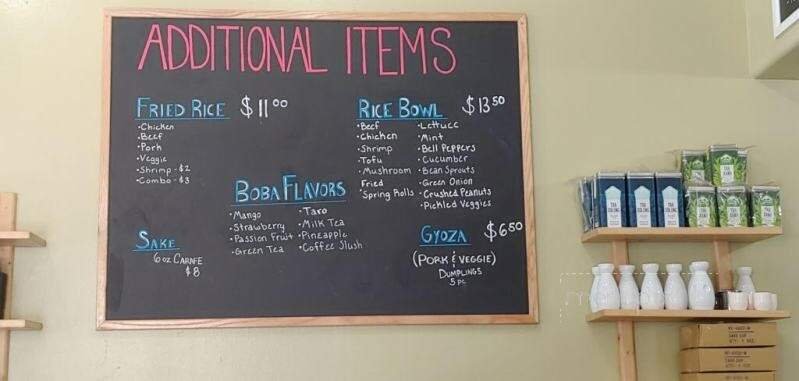 ADDITIONAL ITEMS
FRIED RICE $11.00
•Chicken
•Beef
•Pork
•Veggie
•Shrimp - $2
•Combo - $3
RICE BOWL $13.50
•Beef
•Chicken
•Shrimp
•Tofu
•Mushroom
Fried
•Spring Rolls
•Lettuce
•Mint
•Bell Peppers
•Cucumber
•Bean Sprouts
•Green Onion
•Crushed Peanuts
•Pickled Veggies
BOBA FLAVORS
•Mango
•Strawberry
•Passion Fruit
•Green Tea
•Taro
•Milk Tea
•Pineapple
•Coffee Slush
SAKE
6 oz CARAFE
$8
GYOZA $6.50
(PORK & VEGGIE)
DUMPLINGS
5 pc